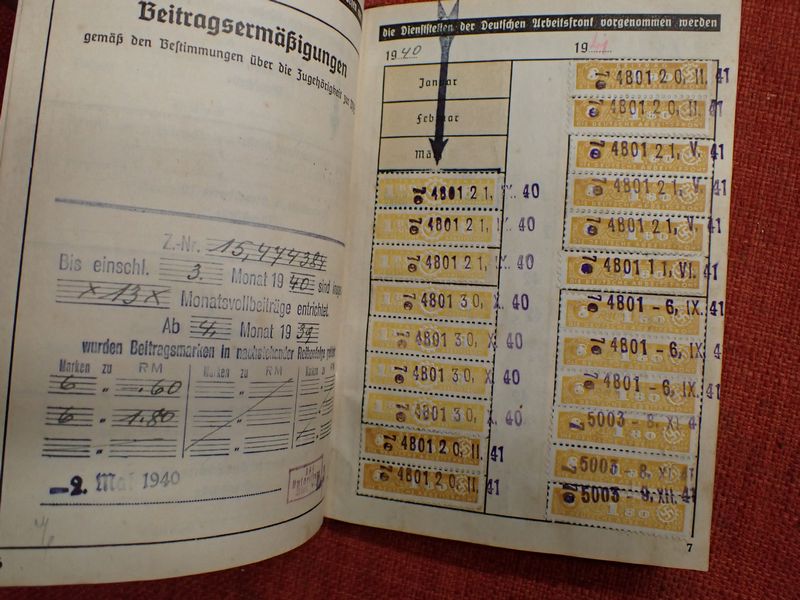 Beitragsermäßigungen
gemäß den Bestimmungen über die Zugehörigkeit zur
Z.-Nr. 15,474384
Bis einschl. 3 Monat 1940 sind insges.
x 13 x Monatsvollbeiträge entrichtet.
Ab 4, Monat 1939
wurden Beitragsmarken in nachstehender Reihenfolge
Marken zu RM Marken zu RM
6 " -.60
6 " 1.80
-2. Mai 1940
die Dienststellen der Deutschen Arbeitsfront vorgenommen werden
1940 1941
Januar
Februar
März
4801 21, IX. 40
4801 21, IX. 40
4801 21, IX. 40
4801 30, X. 40
4801 30, X. 40
4801 30, X. 40
4801 30, X. 40
4801 20, II. 41
4801 20, II. 41
4801 20, II. 41
4801 20, II. 41
4801 21, V. 41
4801 21, V. 41
4801 21, V. 41
4801 11, VI. 41
4801 - 6, IX. 41
4801 - 6, IX. 41
4801 - 6, IX. 41
5003 - 8, XI. 4
5003 - 8, XI. 41
5003 - 9, XII. 41
1.80
7